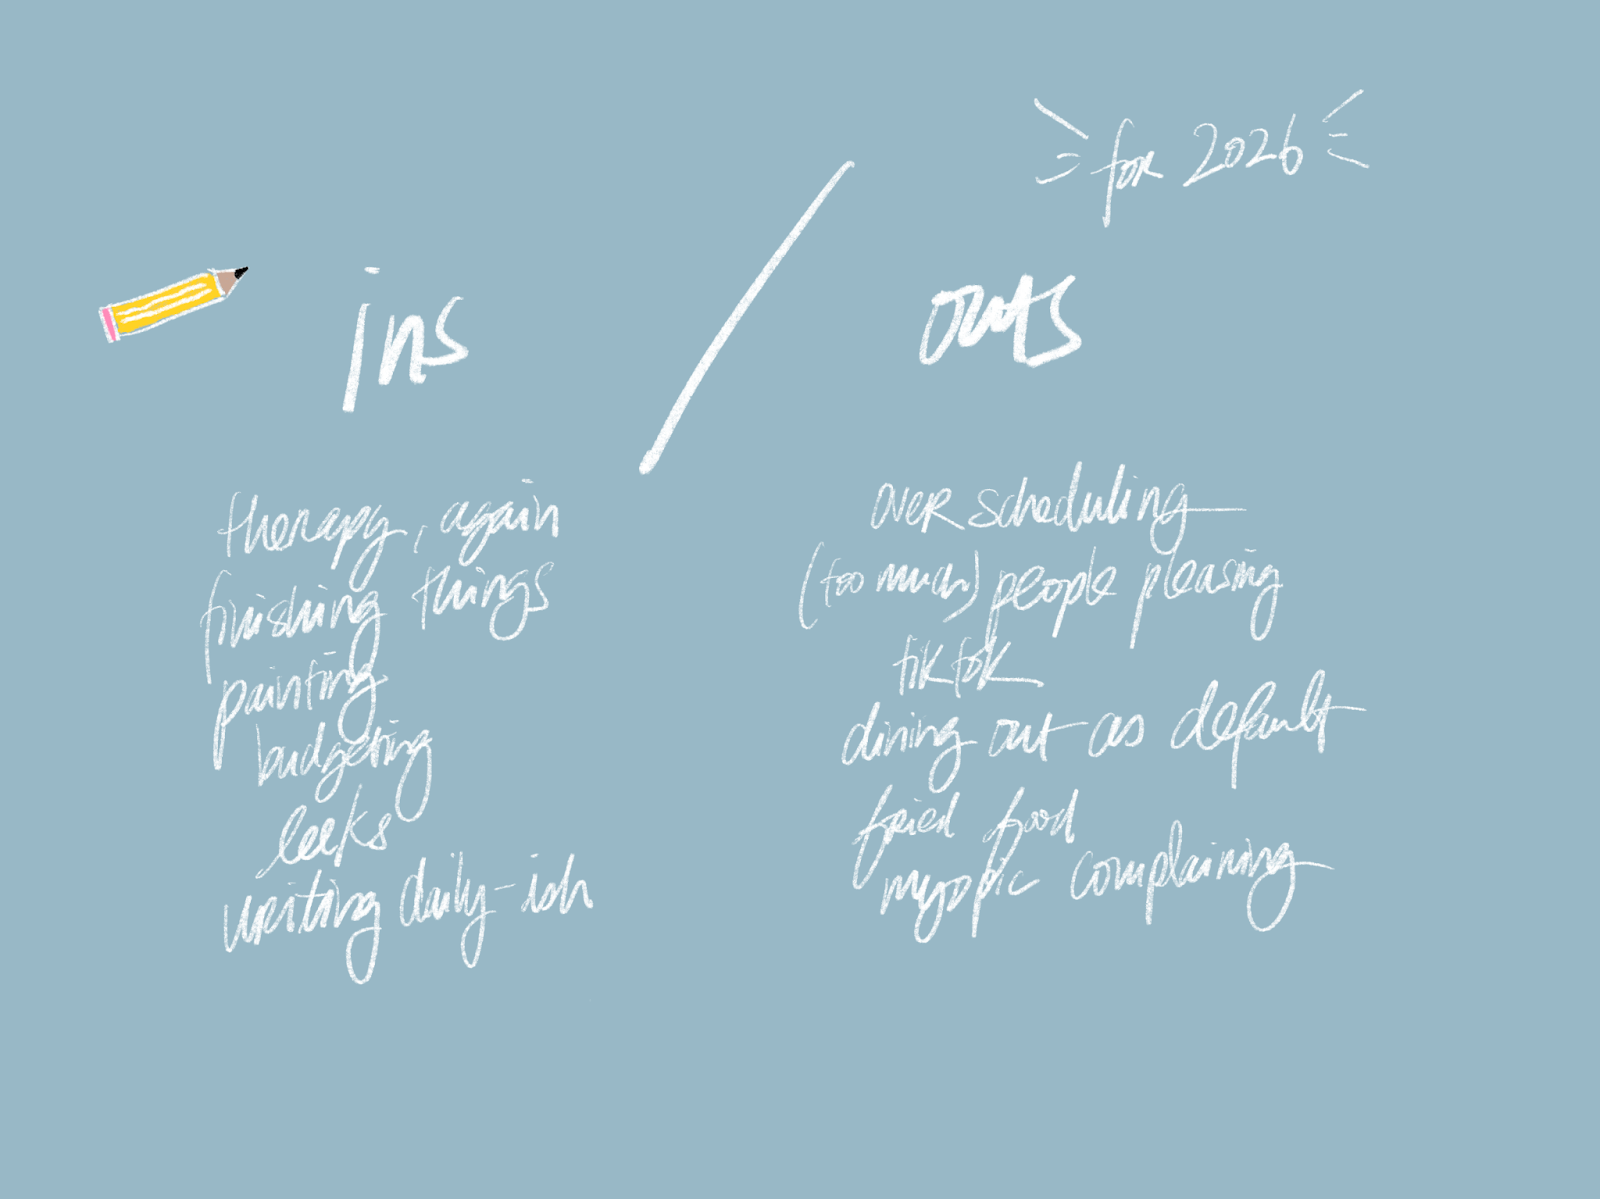 for 2026
ins / outs
therapy, again
finishing things
painting
budgeting
leeks
writing daily-ish
over scheduling
(too much) people pleasing
tiktok
dining out as default
fried food
myopic complaining